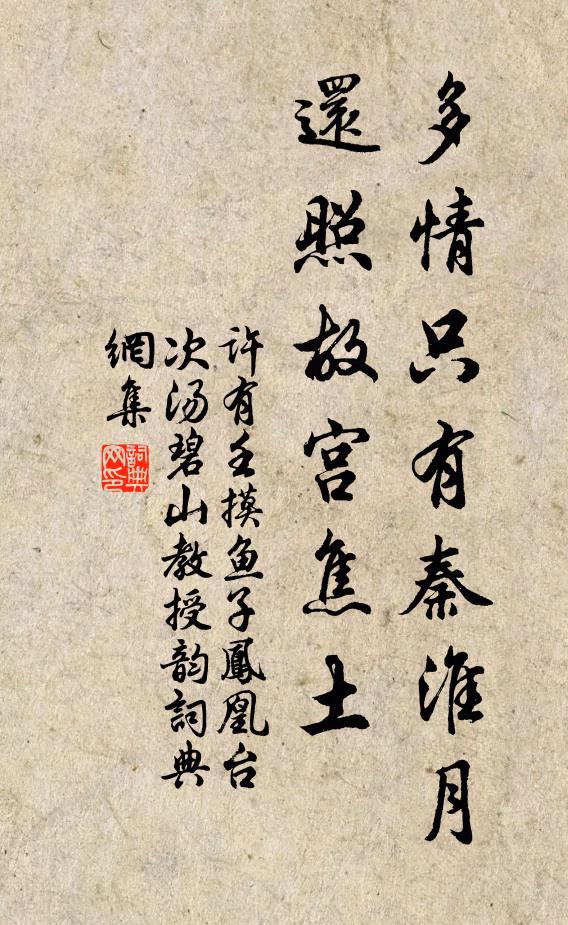 多情只有秦淮月
還照故宫焦土
许有壬摸鱼子鳳凰台
次汤碧山教授韵詞典
網集
詞典
网印